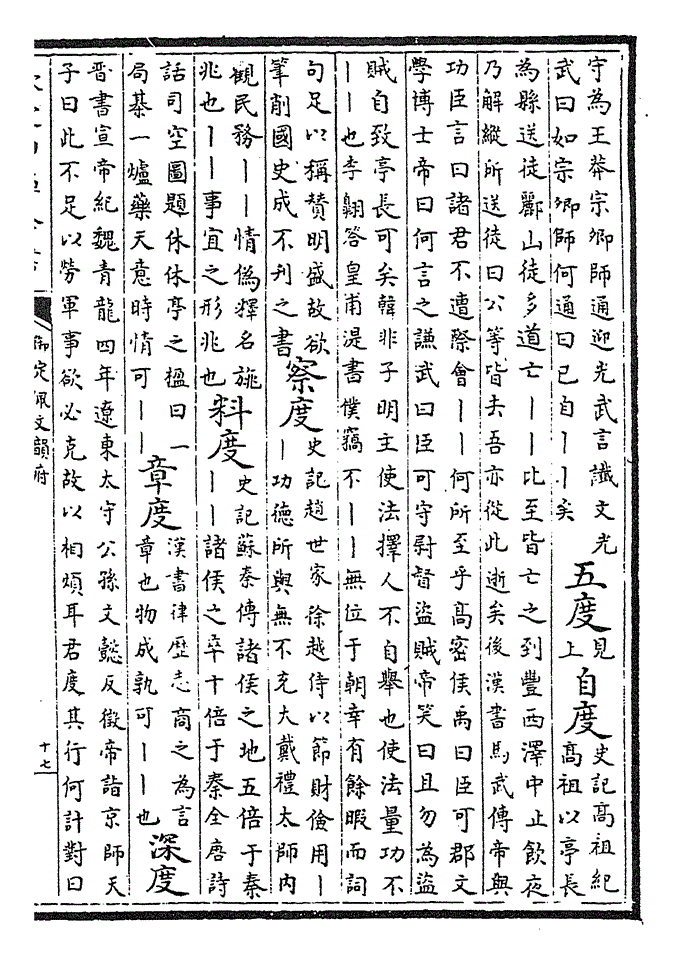 守為王莽宗卿師通迎光武言讖文光
武曰如宗卿師何通曰已自丨丨矣
五度
見
上
自度
史記高祖紀
高祖以亭長
為縣送徒酈山徒多道亡丨丨比至皆亡之到豐西澤中止飲夜
乃解縱所送徒曰公等皆去吾亦從此逝矣後漢書馬武傳帝與
功臣言曰諸君不遭際會丨丨何所至乎高密侯禹曰臣可郡文
學博士帝曰何言之謙武曰臣可守尉督盜賊帝笑曰且勿為盜
賊自致亭長可矣韓非子明主使法擇人不自舉也使法量功不
丨丨也李翺答皇甫湜書僕竊不丨丨無位于朝幸有餘暇而詞
句足以稱贊明盛故欲
筆削國史成不刊之書
察度
史記趙世家徐越侍以節財儉用丨
丨功德所與無不充大戴禮太師内
觀民務丨丨情偽釋名旐
兆也丨丨事宜之形兆也
料度
史記蘇秦傳諸侯之地五倍于秦
丨丨諸侯之卒十倍于秦全唐詩
話司空圖題休休亭之楹曰一
局棊一爐藥天意時情可丨丨
章度
漢書律歷志商之為言
章也物成孰可丨丨也
深度
晉書宣帝紀魏青龍四年遼東太守公孫文懿反徵帝詣京師天
子曰此不足以勞軍事欲必克故以相煩耳君度其行何計對曰
御定佩文韻府
十七